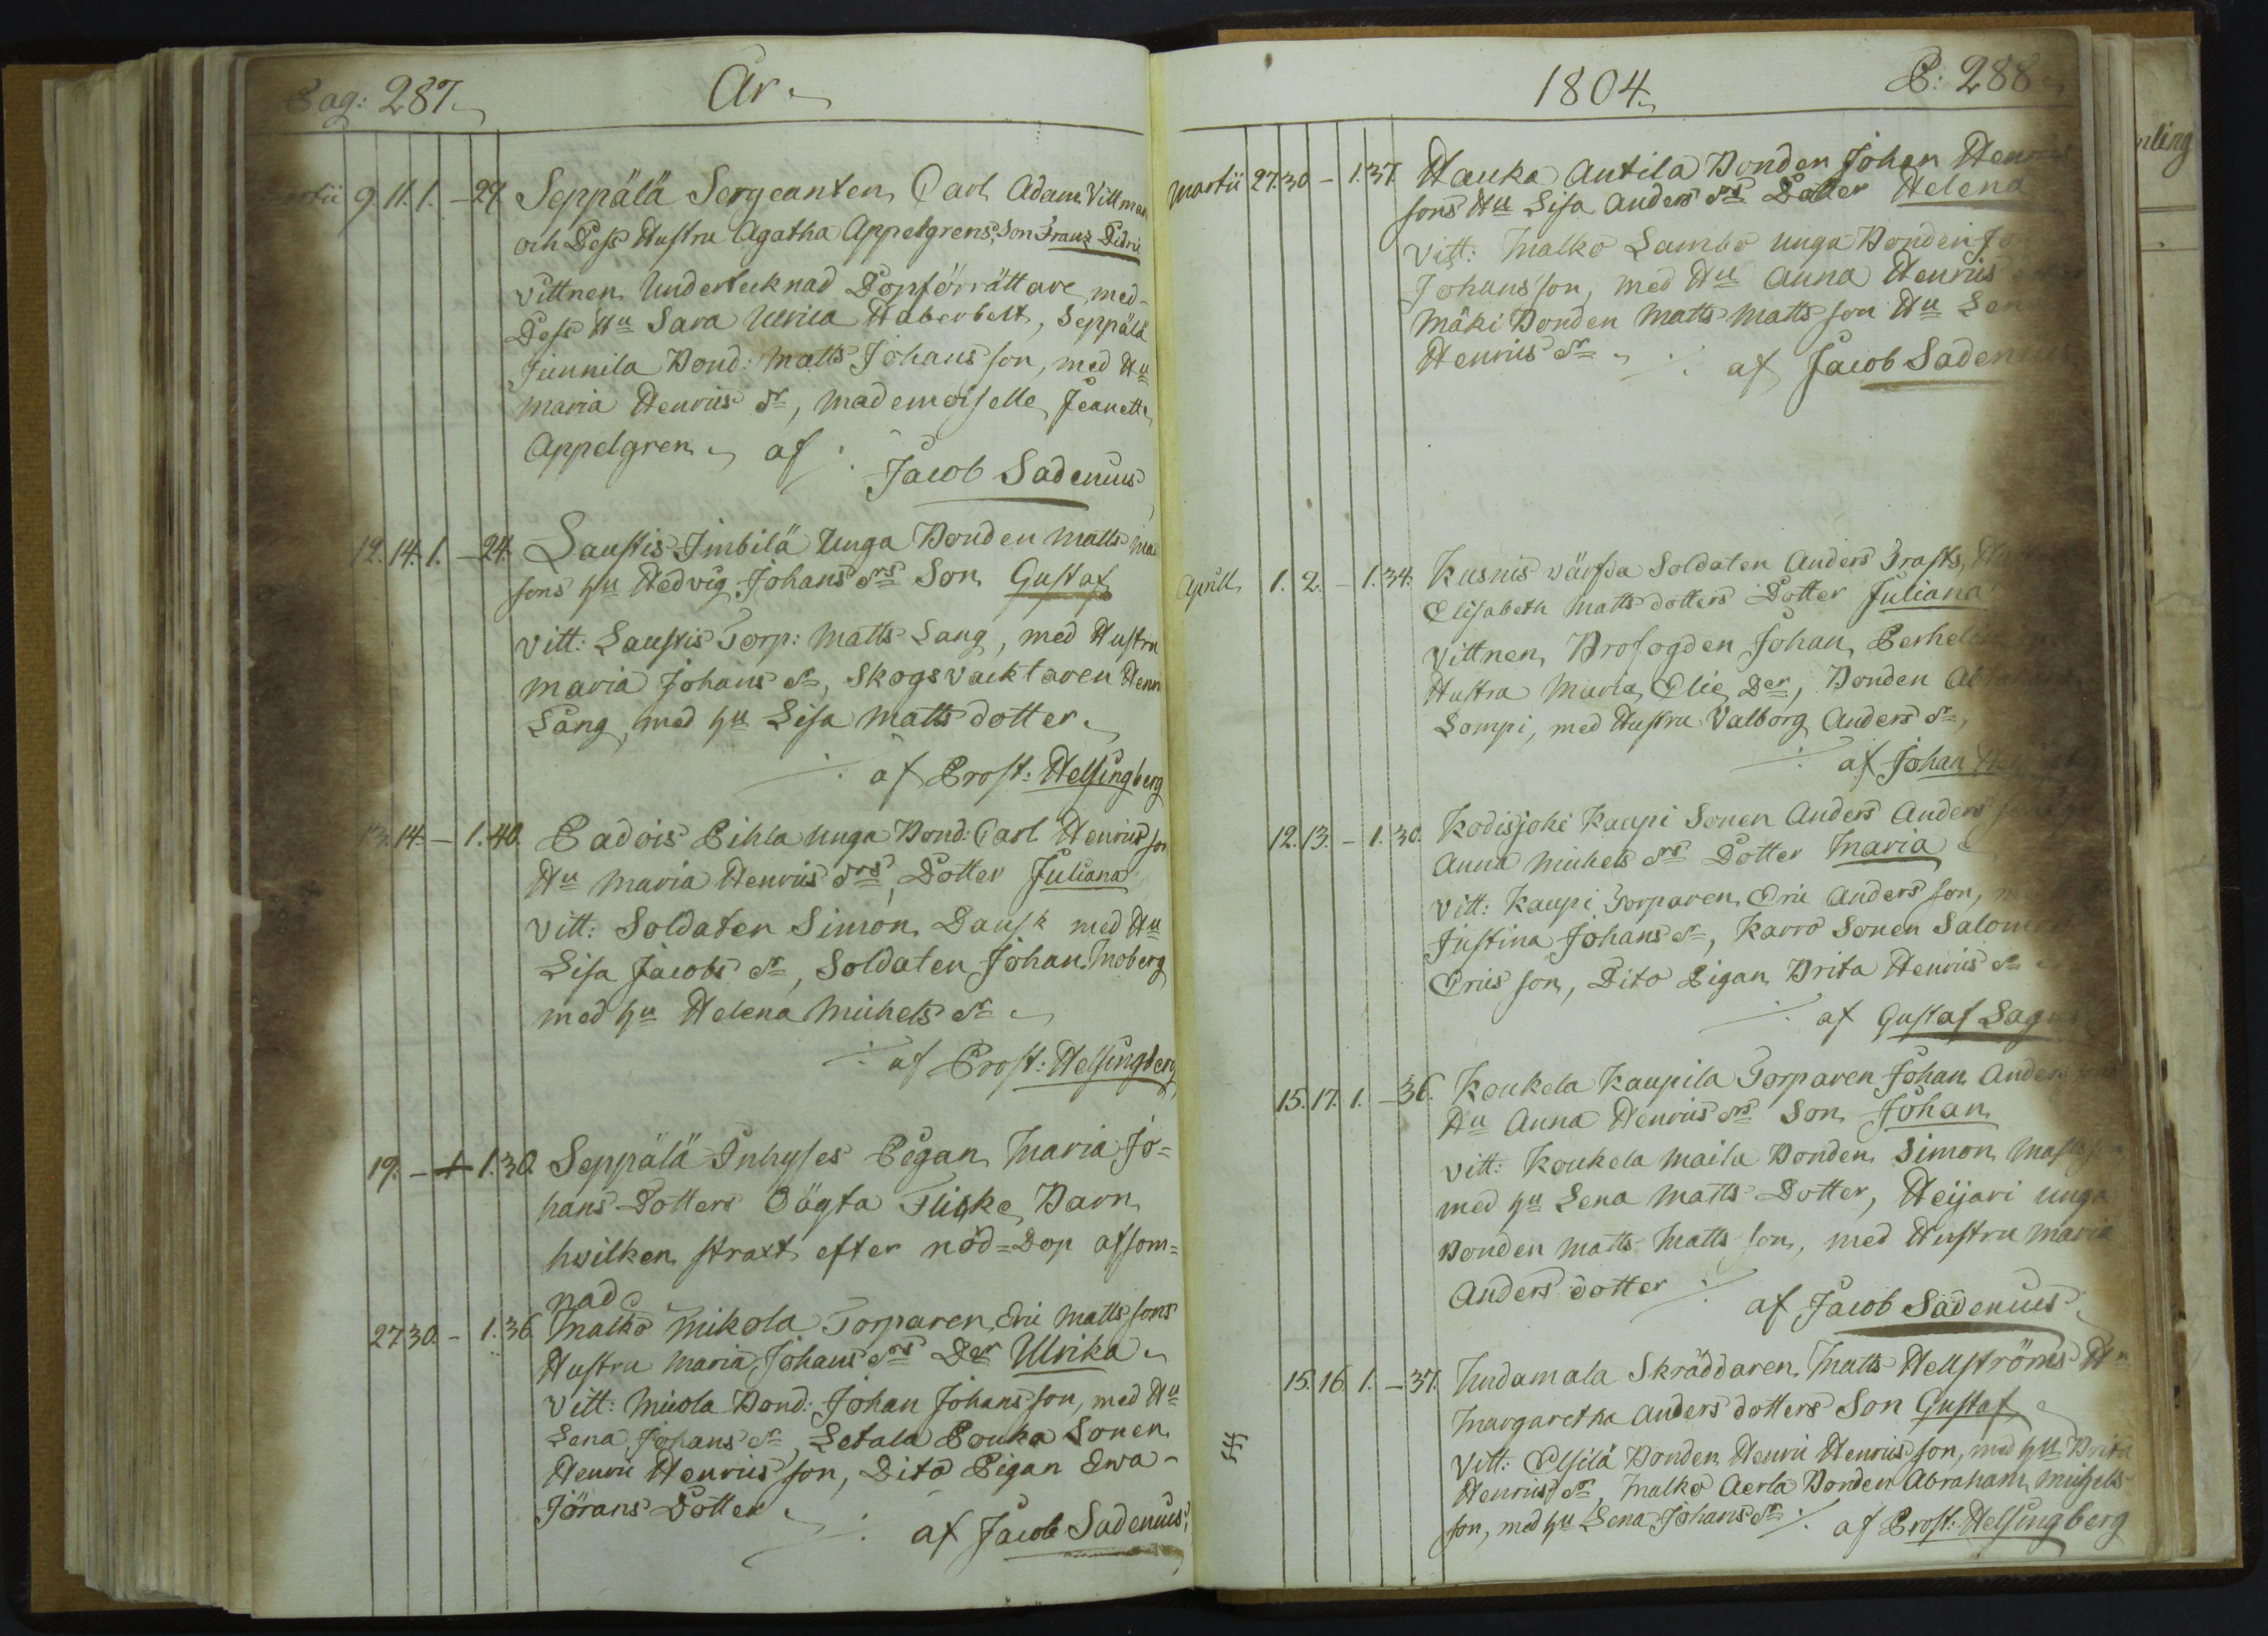 Pag: 287.
År.
Martii 9. 11. 1. – 27. Seppälä Sergeanten Carl Adam Vittman
och Dess Hustru Agatha Appelgrens, Son Frans Didric
Vittnen Undertecknad Dopförrättare, med
Dess Hu Sara Ulrica Haberbelt, Seppälä
Junnila Bond: Matts Johansson, med Hu
Maria Henrics dr, Mademoiselle Jeanette
Appelgren. af ./.
Jacob Sadenius
12. 14. 1. – 24. Laustis Imbilä Unga Bonden Matts
sons hu Hedvig Johans drs Son Gustaf
Vitt: Laustis Torp: Matts Lång, med Hustru
Maria Johans dr, Skogsvacktaren Henr
Lång, med hu Lisa Matts dotter.
./. af Prost: Helsingberg
13. 14. – 1. 40. Padois Pihla Unga Bond: Carl Henricsson
Hu Maria Henrics drs, Dotter Juliana
Vitt: Soldaten Simon Dansk med Hu
Lisa Jacobs dr, Soldaten Johan Moberg
med hu Helena Michels dr
./. af Prost: Helsingberg
19. – 1. 1. 30. Seppälä Inhyses Pigan Maria Jo=
hans Dotters Oägta Flicke Barn
hwilken straxt efter nöd=Dop afsom=
nad
27. 30. – 1. 36. Malko Mikola Torparen Eric Mattssons
Hustru Maria Johans drs Der Ulrika
Vitt: Micola Bond: Johan Johansson, med Hu
Lena Johans dr, Letala Pouka Sonen
Henric Henricsson, Dito Pigan Ewa
Jörans Dotter
./. af Jacob Sadenius
1804
P: 288
Martii 27. 30 – 1. 37. Hauka Antila Bonden Johan Henrics
sons Hu Lisa Anders drs Dotter Helena
Vitt: Malko Sambo Unga Bonden
Johansson, med Hu Anna Henrics
Mäki Bonden Matts Mattsson Hu Lena
Henrics dr
./. af Jacob Sadenius
Aprill 1. 2. – 1. 34. Kusnis värfda Soldaten Anders Frasts,
Elisabeth Matts dotters Dotter Juliana
Vittnen Brofogden Johan
Hustru Maria Elie Der, Bonden Abraham
Lompi, med Hustru Valborg Anders dr,
./. af Johan
12. 13. – 1. 30. Kodisjoki Kaupi Sonen Anders Anders
Anna Michels drs Dotter Maria
Vitt: Kaupi Torparen Eric Andersson,
Justina Johans dr, Karro Sonen Salomon
Ericsson, Dito Pigan Brita Henrics dr
./. af Gustaf Sagu
15. 17. 1. – 36. Koukela Kaupila Torparen Johan Anderssons
Hu Anna Henrics drs Son Johan
Vitt: Koukela Maila Bonden Simon Mattsson
med hu Lena Matts Dotter, Heijari unga
Bonden Matts Mattsson, med Hustru Maria
Anders dotter
./. af Jacob Sadenius
15. 16. 1. – 37. Undamala Skräddaren Matts Hellströms Hu
Margaretha Anders dotters Son Gustaf
Vitt: Elsilä Bonden Henric Henricsson, med hu Brita
Henrics dr, Malko Aerla Bonden Abraham Michels
son, med hu Lena Johans dr ./. af Prost: Helsingberg